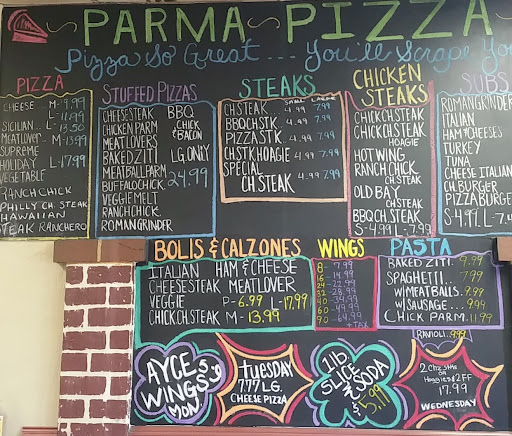 PARMA PIZZA
Pizza So Great... You'll Scrape Yo
PIZZA
CHEESE... M-9.99
L-11.99
SICILIAN... L-13.50
MEATLOVER M-13.99
SUPREME
HOLIDAY L-17.99
VEGETABLE
RANCH CHICK
PHILLY CH. STEAK
HAWAIIAN
STEAK RANCHERO
STUFFED PIZZAS
CHEESESTEAK BBQ
CHICKEN PARM CHICK
MEATLOVERS & BACON
BAKED ZITI LG. ONLY
MEATBALL PARM
BUFFALO CHICK. 24.99
VEGGIE MELT
RANCH CHICK.
ROMAN GRINDER
STEAKS
SMALL LARGE
CH. STEAK 4.99 7.99
BBQ CH. STK 4.99 7.99
PIZZA STK 4.99 7.99
CH STK HOAGIE 4.99 7.99
SPECIAL
CH. STEAK 4.99 7.99
CHICKEN
STEAKS
CHICK CH STEAK
CHICK CH STEAK
HOAGIE
HOT WING
RANCH CHICK
CH STEAK
OLD BAY
CH STEAK
BBQ CH. STEAK
S-4.99 L-7.99
SUBS
ROMAN GRINDER
ITALIAN
HAM & CHEESE
TURKEY
TUNA
CHEESE ITALIAN
CH. BURGER
PIZZA BURGER
S-4.99 L-7.
BOLIS & CALZONES
ITALIAN HAM & CHEESE
CHEESESTEAK MEATLOVER
VEGGIE P-6.99 L-17.99
CHICK CH. STEAK M-13.99
WINGS
8-7.99
16-14.99
24-22.99
32-28.99
40-34.99
50-49.99
90-64.99
+ TAX
PASTA
BAKED ZITI 9.99
SPAGHETTI... 7.99
W/ MEATBALLS.. 9.99
W/ SAUSAGE... 9.99
CHICK PARM. 11.99
RAVIOLI.. 9.99
AYCE
WINGS
MON
TUESDAY
777 LG.
CHEESE PIZZA
1 lb
SLICE &
SODA
$5.99
2 Chz Stks
OR
Hoagies & 2 FF
17.99
WEDNESDAY